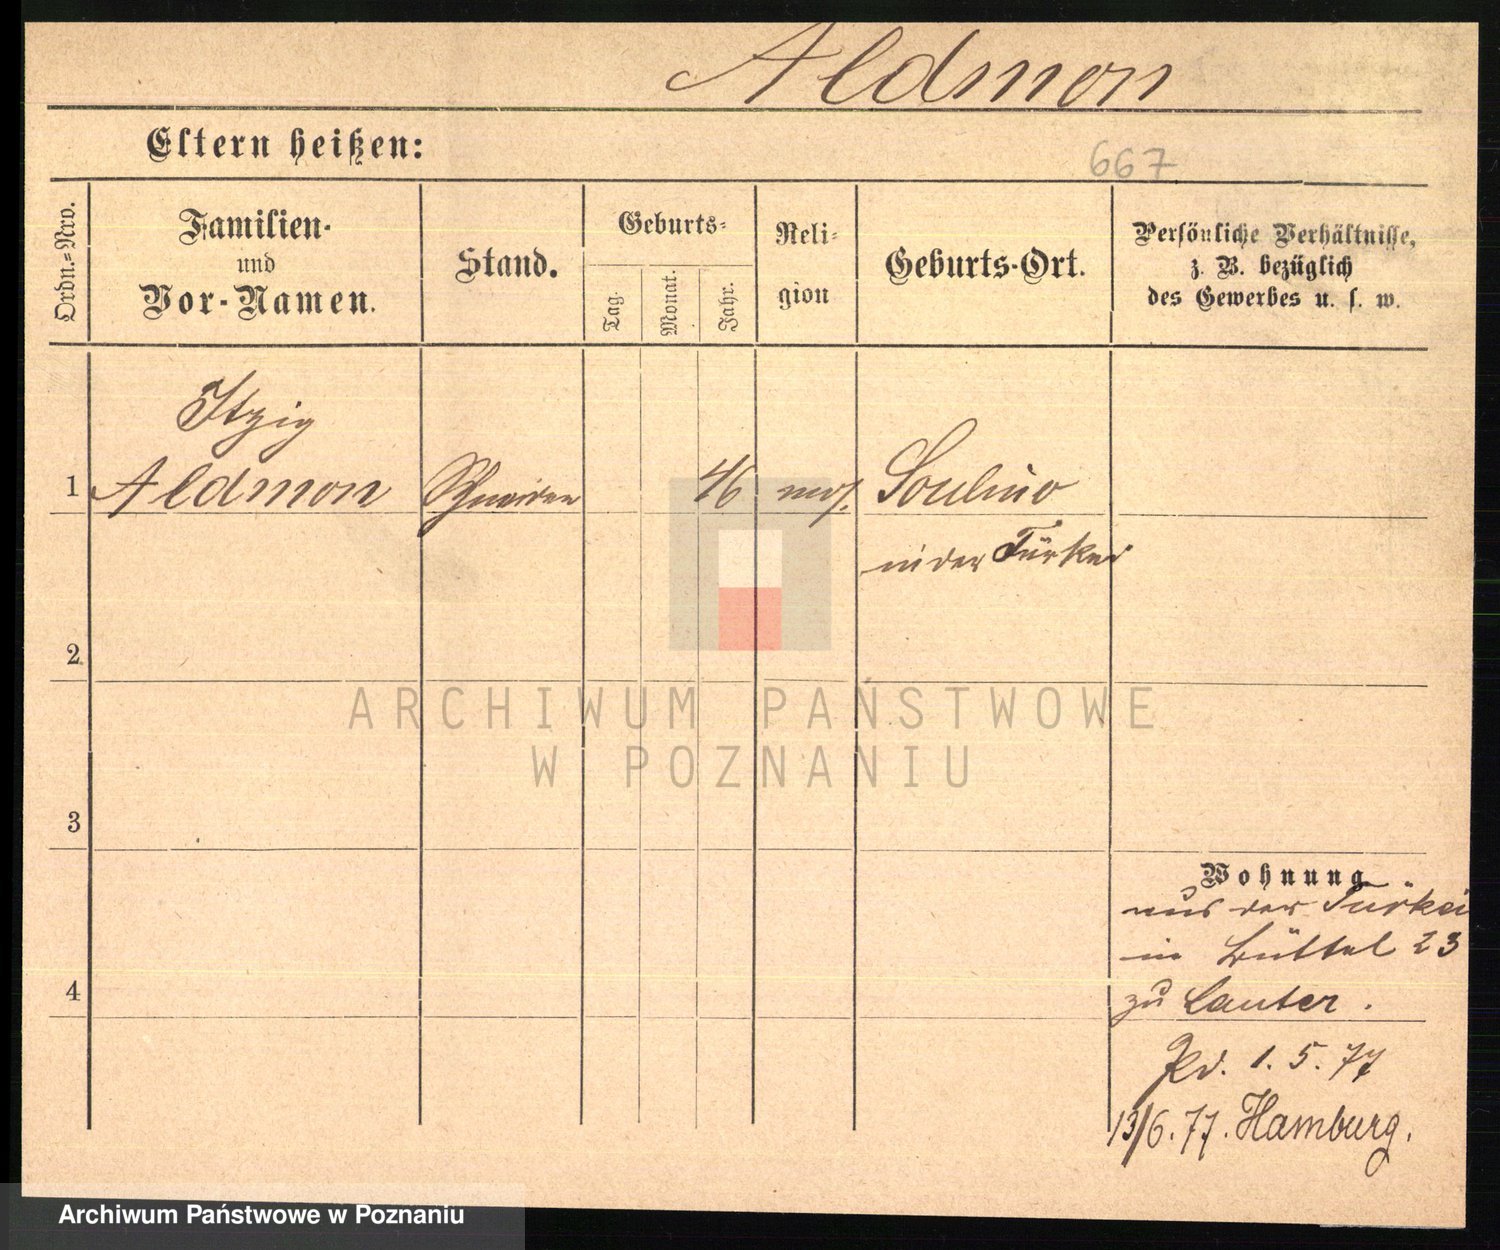 Aldmon
Eltern heißen:
667
Ordn.-Nro.
Familien-
und
Vor-Namen.
Stand.
Geburts-
Tag.
Monat.
Jahr.
Reli-
gion
Geburts-Ort.
Persönliche Verhältnisse,
z. B. bezüglich
des Gewerbes u. s. w.
Itzig
1 Aldmon Schneider 46 mos. Soulino
in der Türkei
2
3
4
Wohnung
aus der Türkei
in Büttel 23
zu Lauter.
1. 5. 77
13/6. 77. Hamburg.
ARCHIWUM PAŃSTWOWE
W POZNANIU
Archiwum Państwowe w Poznaniu